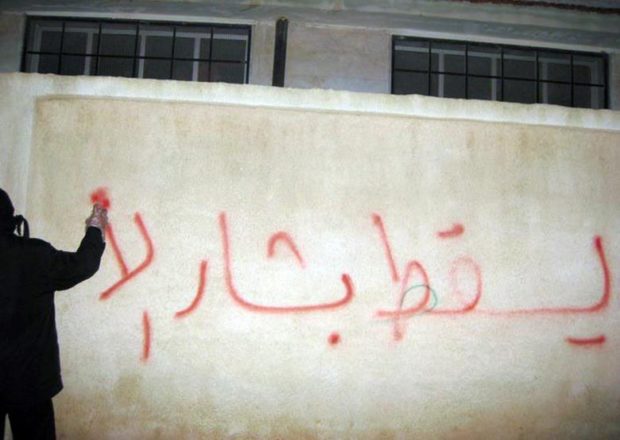 يسقط بشار الأ